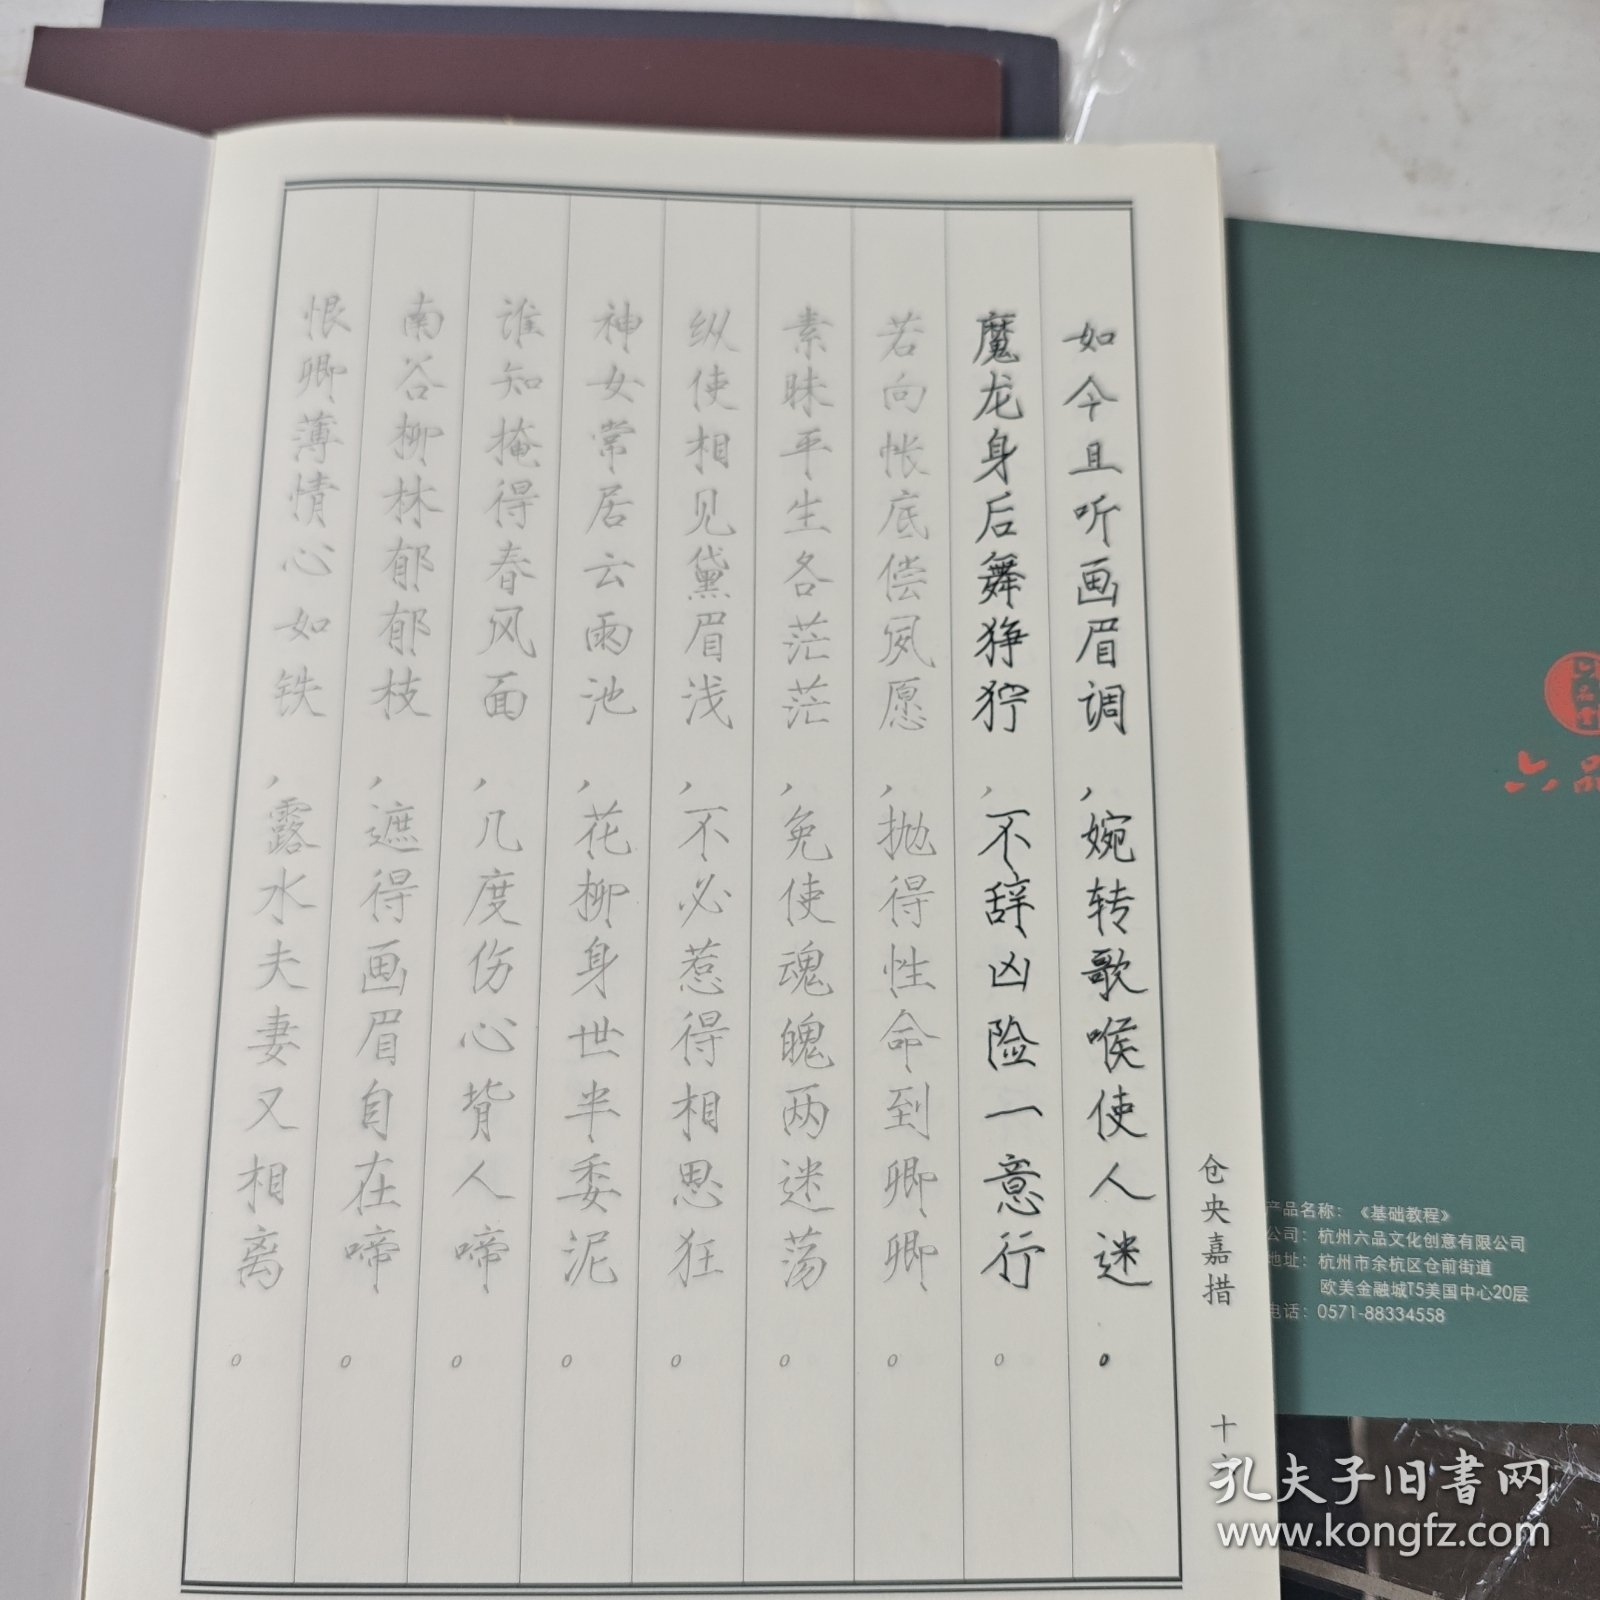 如今且听画眉调，婉转歌喉使人迷。
魔龙身后舞狰狞，不辞凶险一意行。
若向帐底偿夙愿，抛得性命到卿卿。
素昧平生各茫茫，免使魂魄两迷荡。
纵使相见黛眉浅，不必惹得相思狂。
神女常居云雨池，花柳身世半委泥。
谁知掩得春风面，几度伤心背人啼。
南谷柳林郁郁枝，遮得画眉自在啼。
恨卿薄情心如铁，露水夫妻又相离。
仓央嘉措
十
六品
产品名称：《基础教程》
公司：杭州六品文化创意有限公司
地址：杭州市余杭区仓前街道
欧美金融城T5美国中心20层
电话：0571-88334558
孔夫子旧书网
www.kongfz.com